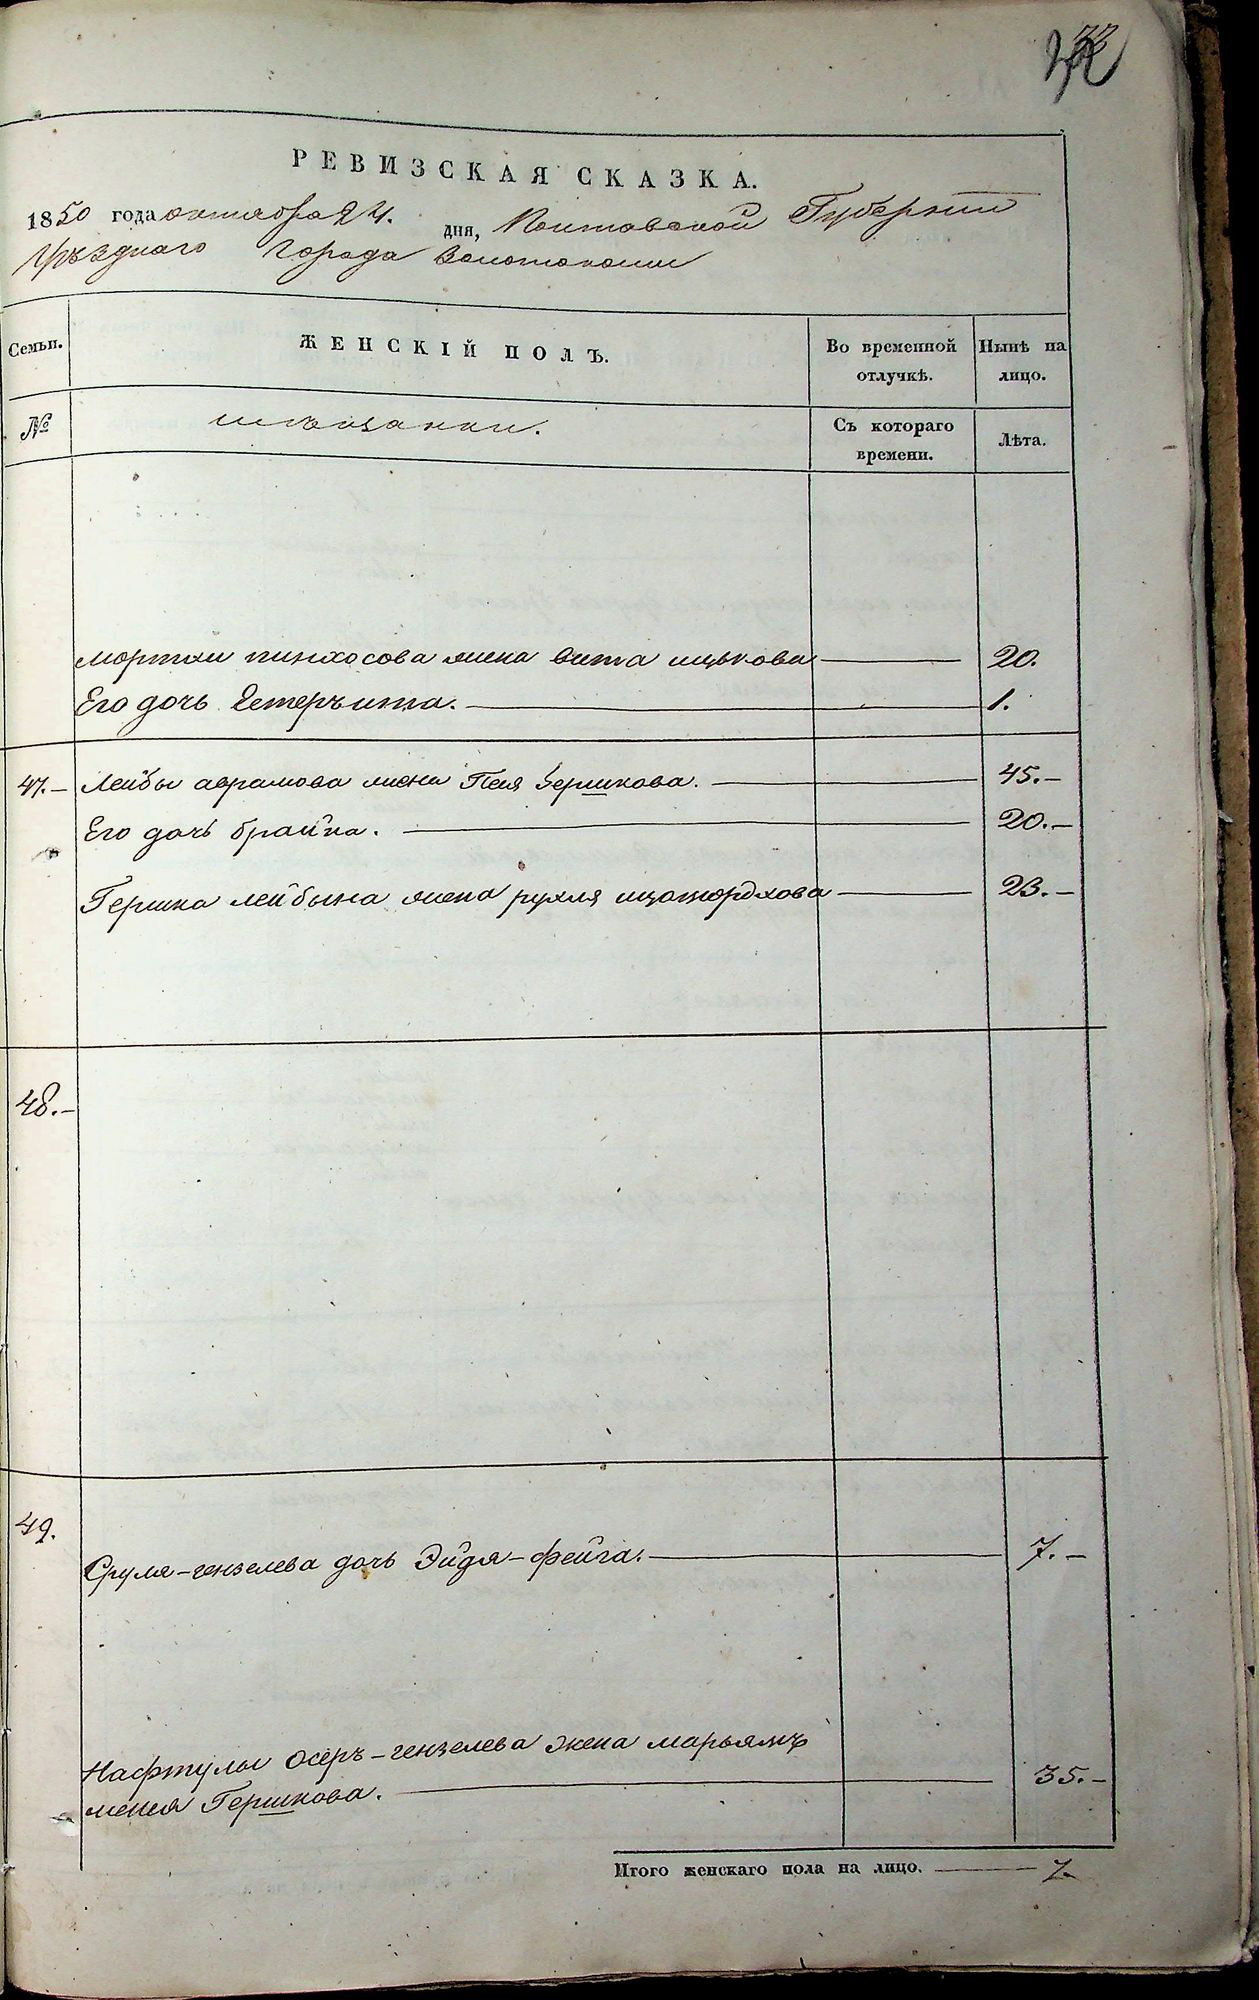 РЕВИЗСКАЯ СКАЗКА.
1850 года октября 24. дня, Полтавской Губернии
Уѣзднаго Города Золотоноши
Семьи. ЖЕНСКІЙ ПОЛЪ. Во временной отлучкѣ. Нынѣ на лицо.
№ мѣщанки. Съ котораго времени. Лѣта.
пинхосова жена ицькова 20.
Его дочь Естеръ 1.
47.- Лейбы аврамова жена Песя Гершкова. 45.-
Его дочь брайна. 20.-
Гершка лейбына жена рухля 23.-
48.-
49.
Сруля-гензелева дочь Эйдя-фейга. 7.-
Нафтулы Осеръ-гензелева жена марьямъ
Гершкова. 35.-
Итого женскаго пола на лицо. 7.